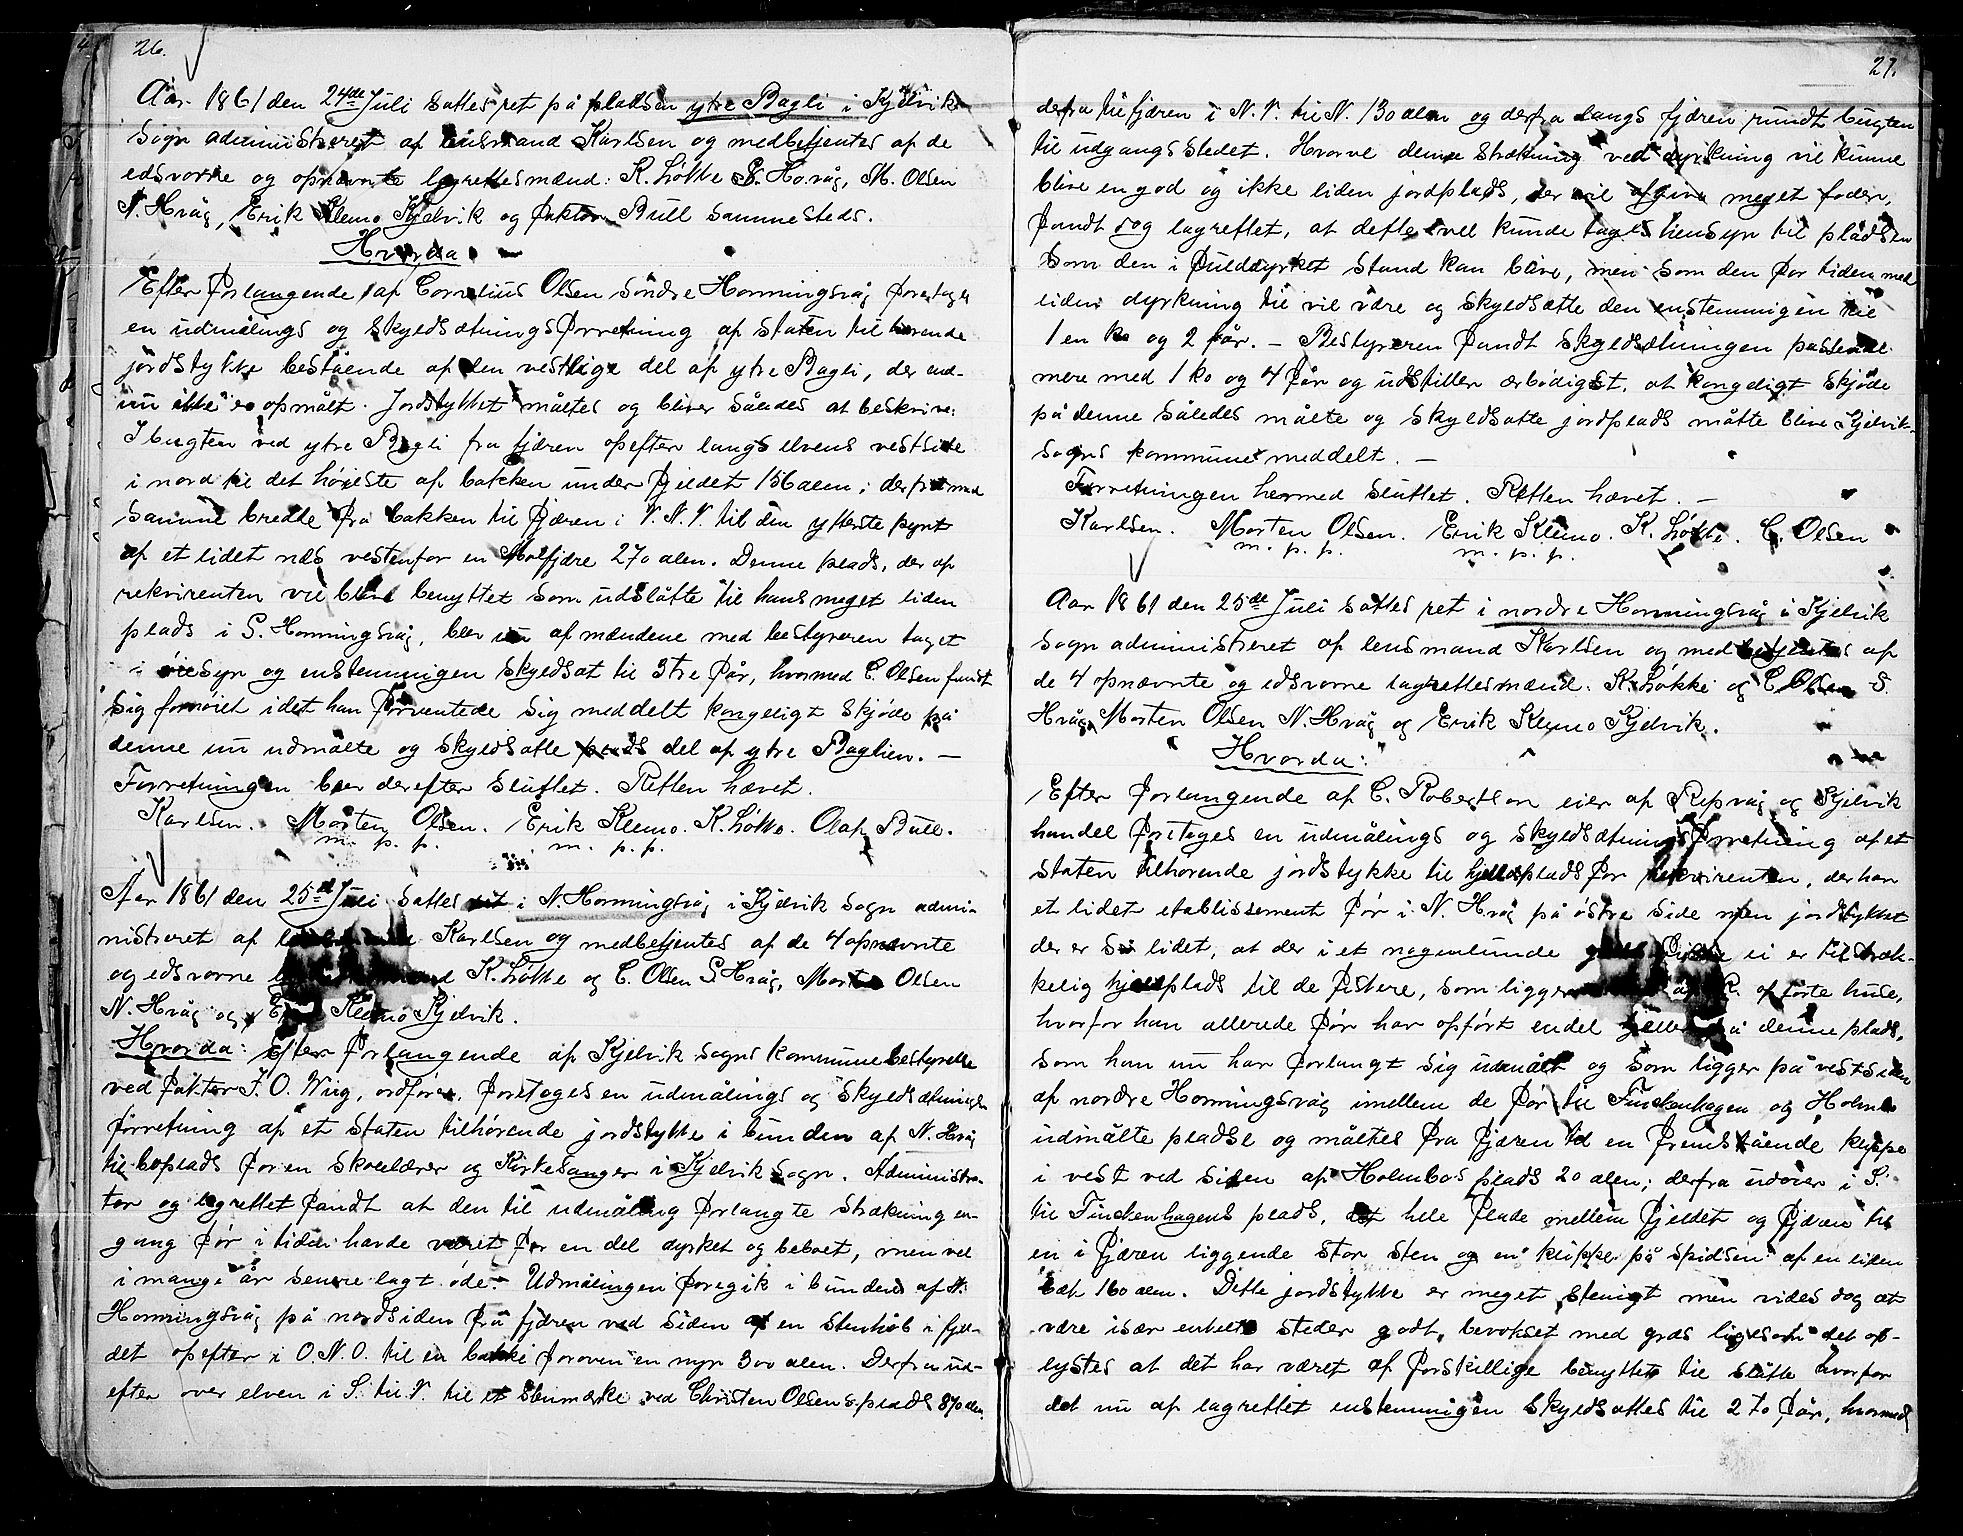 26.
Aar 1861 den 24de Juli sattes ret på pladsen ytre Bagli i Kjelvik
sogn administreret af lensmand Karlsen og medbetjentes af de
edsvorne og opnævnte lagrettesmænd: K. Løkke S. Hvåg, M. Olsen
N. Hvåg, Erik Klemo Kjelvik og faktor Bull sammesteds.
Hvorda
Efter forlangende af Cornelius Olsen søndre Honningsvåg foretages
en udmålings og skyldsætningsforretning af staten tilhørende
jordstykke bestående af den vestlige del af ytre Bagli, der end-
nu ikke er opmålt. Jordstykket måltes og bliver således at beskrive:
I bugten ved ytre Bagli fra fjæren opefter langs elvens vestside
i nord til det højeste af bakken under fjeldet 156 alen; derfra med
samme bredde fra bakken til fjæren i V.N.V. til den ytterste pynt
af et lidet næs vestenfor en Molfjære 270 alen. Denne plads, der af
rekvirenten vil blive benyttet som udslåtte til hans meget liden
plads i S. Honningsvåg, blev nu af mændene med bestyreren taget
i øiesyn og enstemmigen skyldsat til 3tre får, hvormed C. Olsen fandt
sig fornøiet idet han forventede sig meddelt kongeligt skjøde på
denne nu udmålte og skyldsatte plads del af ytre Baglien. —
Forretningen blev derefter sluttet. Retten hævet.
Karlsen. Morten Olsen. Erik Klemo. K. Løkke. Olaf Bull.
m. p. p. m. p. p.
Aar 1861 den 25de Juli sattes ret i N. Honningsvåg i Kjelvik sogn admi-
nistreret af Karlsen og medbetjentes af de 4 opnævnte
og edsvorne K. Løkke og C. Olsen S Hvåg, Morten Olsen
N. Hvåg og Erik Klemo Kjelvik.
Hvorda: Efter forlangende af Kjelvik sogns kommunebestyrelse
ved faktor F. O. Wiig, ordfører, foretages en udmålings og skyldsætnings
forretning af et staten tilhørende jordstykke i bunden af N. Hvåg
til boplads for en skolelærer og Kirkesanger i Kjelvik sogn. Administra-
tor og lagrettet fandt at den til udmåling forlangte strækning en-
gang før i tiden havde været for en del dyrket og beboet, men vel
i mange år senere lagt øde. Udmålingen foregik i bunden af N.
Honningsvåg på nordsiden fra fjæren ved siden af en stenhob i fjel-
det opefter i O.N.O. til en bakke foroven en myr 300 alen. Derfra ud-
efter over elven i S. til V. til et stenmærke ved Christen Olsens plads 870 alen,
27.
derfra til fjæren i N.V. til N. 130 alen og derfra langs fjæren rundt bugten
til udgangsstedet. Hvorvel denne strækning ved dyrkning vil kunne
blive en god og ikke liden jordplads, der vil afgive meget foder,
fandt dog lagrettet, at dette vel kunde tages hensyn til pladsen
som den i fulddyrket stand kan blive, men som den for tiden med
liden dyrkning til vil være og skyldsætte den enstemmigen til
1 en ko og 2 får. — Bestyreren fandt skyldsætningen passende
mere med 1 ko og 4 får og indstiller ærbødigst, at kongeligt skjøde
på denne således målte og skyldsatte jordplads måtte blive Kjelvik-
sogns kommune meddelt. —
Forretningen hermed sluttet. Retten hævet. —
Karlsen. Morten Olsen. Erik Klemo. K. Løkke. C. Olsen
m. p. p. m. p. p.
Aar 1861 den 25de Juli sattes ret i nordre Honningsvåg i Kjelvik
sogn administreret af lensmand Karlsen og medbetjentes af
de 4 opnævnte og edsvorne lagrettesmænd. K. Løkke og C. Olsen S.
Hvåg Morten Olsen N. Hvåg og Erik Klemo Kjelvik.
Hvorda:
Efter forlangende af C. Robertson eier af Repvåg og Kjelvik
handel foretages en udmålings og skyldsætningsforretning af et
staten tilhørende jordstykke til hjeldplads for rekvirenten, der har
et lidet etablissement før i N. Hvåg på østre side men jordstykket
der er så lidet, at der i et nogenlunde ei er tilstræk-
kelig hjeldplads til de fiskere, som ligger R. opførte huse,
hvorfor han allerede før har opført endel hjeller på denne plads,
som han nu har forlangt sig udmålt og som ligger på vestsiden
af nordre Honningsvåg imellem de før til Finckenhagen og Holmbo
udmålte pladse og måltes fra fjæren til en fremstående klippe
i vest ved siden af Holmbos plads 20 alen; derfra udover i S.
til Finckenhagens plads, det hele flade mellem fjeldet og fjæren til
en i fjæren liggende stor sten og en klippe på spidsen af en liden
bæk 160 alen. Dette jordstykke er meget stenigt men vides dog at
være især enkelte steder godt, bevokset med græs ligesom det op-
lystes at det har været af forskillige benyttet til slåtte hvorfor
det nu af lagrettet enstemmigen skyldsattes til 2 to får, hvormed